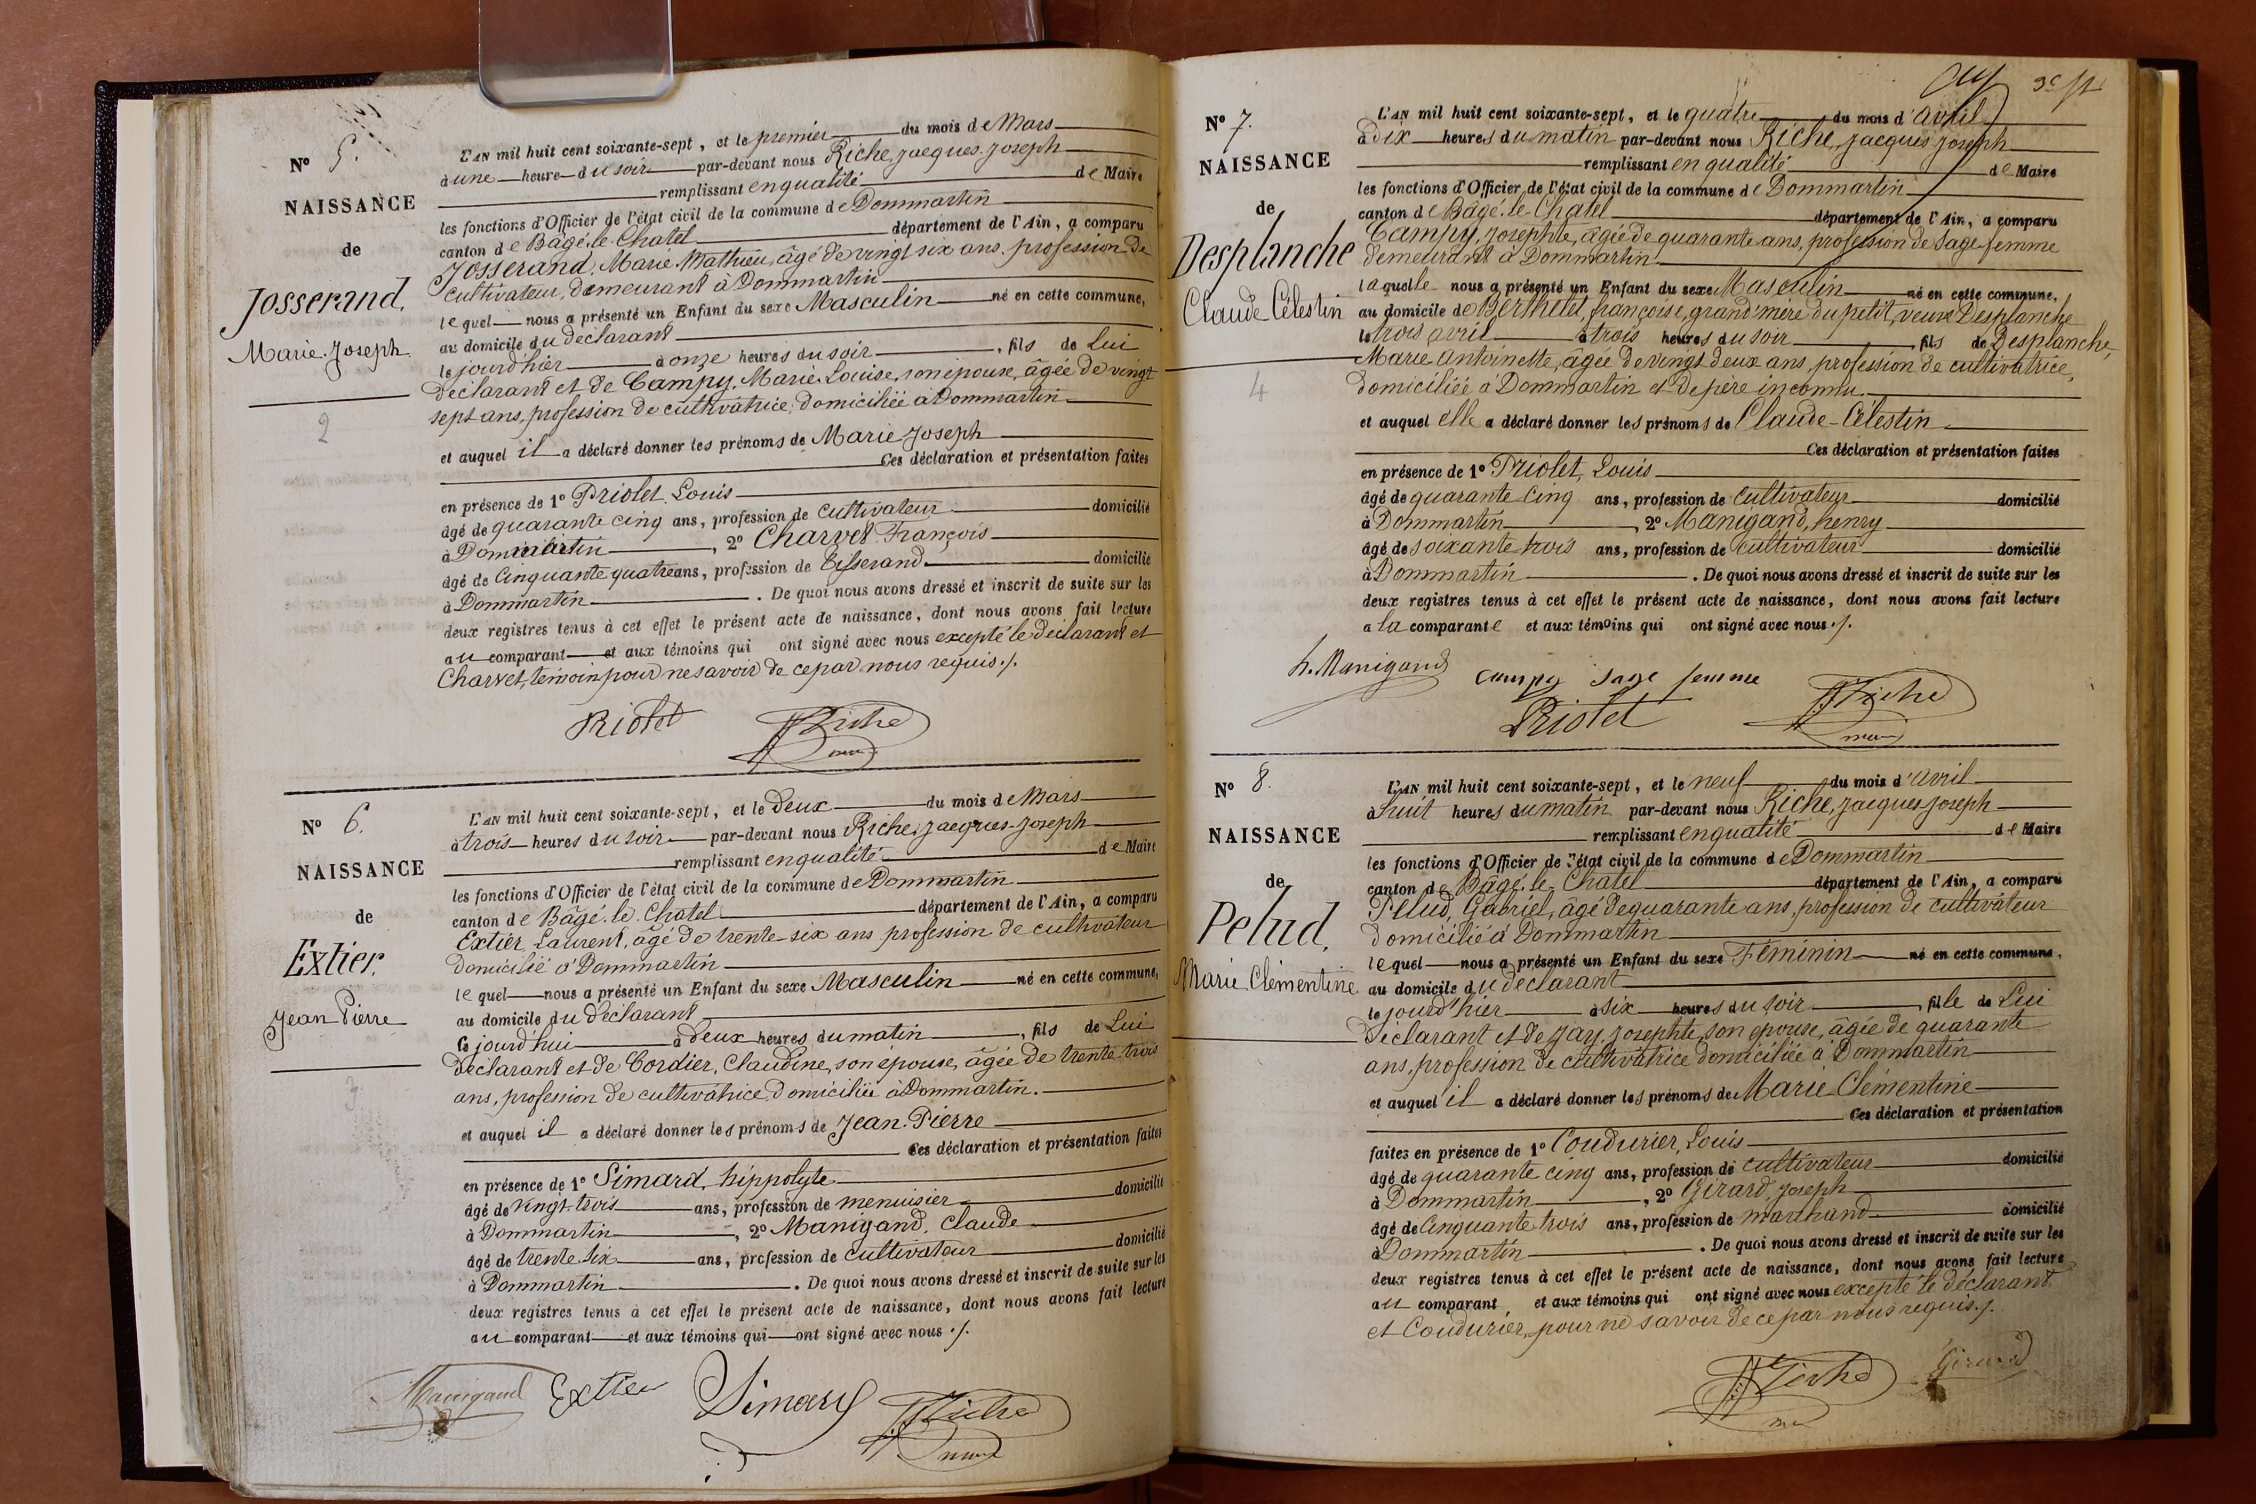 Nº 5.
NAISSANCE
de
Josserand,
Marie-Joseph
2
L'AN mil huit cent soixante-sept, et le premier du mois de Mars
à une heure du soir par-devant nous Riche, Jacques-Joseph
remplissant en qualité de Maire
les fonctions d'Officier de l'état civil de la commune de Dommartin
canton de Bâgé-le-Chatel département de l'Ain, a comparu
Josserand, Marie-Mathieu, âgé de vingt six ans, profession de
cultivateur, demeurant à Dommartin
lequel nous a présenté un Enfant du sexe Masculin né en cette commune,
au domicile du déclarant
le jourd'hier à onze heures du soir, fils de Lui
déclarant et de Campy, Marie-Louise, son épouse, âgée de vingt
sept ans, profession de cultivatrice, domiciliée à Dommartin
et auquel il a déclaré donner les prénoms de Marie Joseph
Ces déclaration et présentation faites
en présence de 1º Priolet, Louis
âgé de quarante cinq ans, profession de cultivateur domicilié
à Dommartin, 2º Charvet François
âgé de Cinquante quatre ans, profession de Tisserand domicilié
à Dommartin. De quoi nous avons dressé et inscrit de suite sur les
deux registres tenus à cet effet le présent acte de naissance, dont nous avons fait lecture
au comparant et aux témoins qui ont signé avec nous excepté le déclarant et
Charvet, témoin pour ne savoir de ce par nous requis ./.
Priolet Riche
Nº 6.
NAISSANCE
de
Extier,
Jean Pierre
3
L'AN mil huit cent soixante-sept, et le deux du mois de Mars
à trois heures du soir par-devant nous Riche, Jacques-Joseph
remplissant en qualité de Maire
les fonctions d'Officier de l'état civil de la commune de Dommartin
canton de Bâgé-le-Chatel département de l'Ain, a comparu
Extier, Laurent, âgé de trente-six ans profession de cultivateur
domicilié à Dommartin
lequel nous a présenté un Enfant du sexe Masculin né en cette commune,
au domicile du déclarant
le jourd'hui à deux heures du matin, fils de Lui
déclarant et de Cordier, Claudine, son épouse, âgée de trente-trois
ans, profession de cultivatrice, domiciliée à Dommartin.
et auquel il a déclaré donner les prénoms de Jean-Pierre
Ces déclaration et présentation faites
en présence de 1º Simard, hippolyte
âgé de vingt-trois ans, profession de menuisier domicilié
à Dommartin, 2º Manigand, Claude
âgé de trente six ans, profession de cultivateur domicilié
à Dommartin. De quoi nous avons dressé et inscrit de suite sur les
deux registres tenus à cet effet le présent acte de naissance, dont nous avons fait lecture
au comparant et aux témoins qui ont signé avec nous ./.
Manigand Extier Simard Riche
3e
Nº 7.
NAISSANCE
de
Desplanche
Claude Célestin
4
L'AN mil huit cent soixante-sept, et le quatre du mois d'avril
à dix heures du matin par-devant nous Riche, Jacques Joseph
remplissant en qualité de Maire
les fonctions d'Officier de l'état civil de la commune de Dommartin
canton de Bâgé-le-Chatel département de l'Ain, a comparu
Campy, Josephte, âgée de quarante ans, profession de Sage femme
demeurant à Dommartin
laquelle nous a présenté un Enfant du sexe Masculin né en cette commune,
au domicile de Berthelet, françoise, grand'mère du petit, veuve Desplanche
le trois avril à trois heures du soir, fils de Desplanche,
Marie Antoinette, âgée de vingt deux ans, profession de cultivatrice,
domiciliée à Dommartin et de père inconnu.
et auquel elle a déclaré donner les prénoms de Claude-Célestin
Ces déclaration et présentation faites
en présence de 1º Priolet, Louis
âgé de quarante cinq ans, profession de cultivateur domicilié
à Dommartin, 2º Manigand, henry
âgé de soixante trois ans, profession de cultivateur domicilié
à Dommartin. De quoi nous avons dressé et inscrit de suite sur les
deux registres tenus à cet effet le présent acte de naissance, dont nous avons fait lecture
a la comparante et aux témoins qui ont signé avec nous ./.
h. Manigand Campy sage femme Riche
Priolet
Nº 8.
NAISSANCE
de
Pelud,
Marie Clémentine
L'AN mil huit cent soixante-sept, et le neuf du mois d'avril
à huit heures du matin par-devant nous Riche, Jacques Joseph
remplissant en qualité de Maire
les fonctions d'Officier de l'état civil de la commune de Dommartin
canton de Bâgé-le-Chatel département de l'Ain, a comparu
Pelud, Gabriel, âgé de quarante ans, profession de cultivateur
domicilié à Dommartin
lequel nous a présenté un Enfant du sexe Féminin né en cette commune,
au domicile du déclarant
le jourd'hier à six heures du soir, fille de Lui
déclarant et de Jay, Josephte, son épouse, âgée de quarante
ans, profession de cultivatrice domiciliée à Dommartin
et auquel il a déclaré donner les prénoms de Marie Clémentine
Ces déclaration et présentation
faites en présence de 1º Coudurier, Louis
âgé de quarante cinq ans, profession de cultivateur domicilié
à Dommartin, 2º Girard, Joseph
âgé de Cinquante trois ans, profession de marchand domicilié
à Dommartin. De quoi nous avons dressé et inscrit de suite sur les
deux registres tenus à cet effet le présent acte de naissance, dont nous avons fait lecture
au comparant et aux témoins qui ont signé avec nous excepté le déclarant
et Coudurier, pour ne savoir de ce par nous requis ./.
Riche Girard